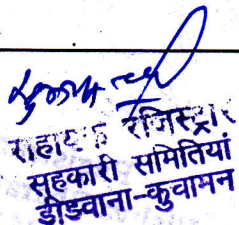 सहायक रजिस्ट्रार
सहकारी समितियां
डीडवाना-कुचामन